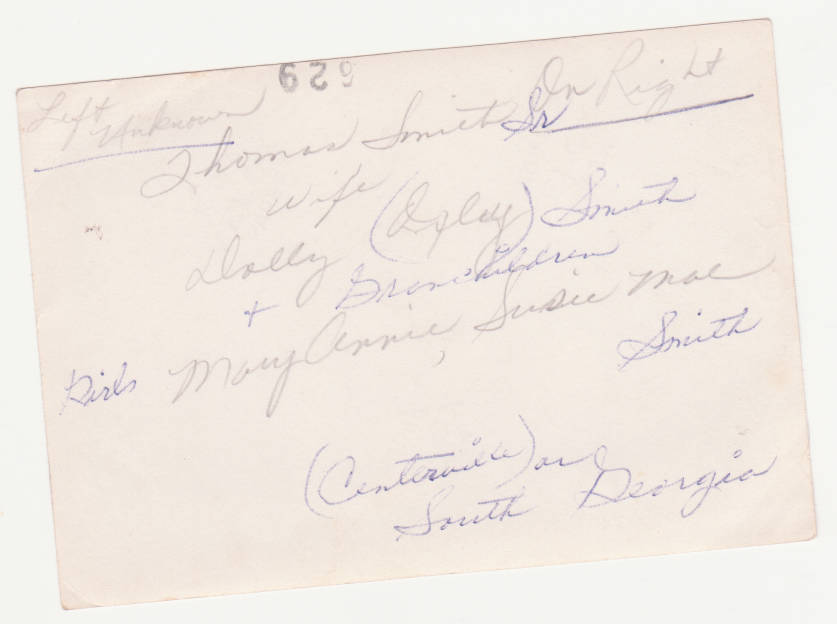 629
Left On Right
Unknown
Thomas Smith Sr
Wife
Dolly (Oxley) Smith
+ Granchildren
Girls Mary Annie, Susie Mae
Smith
(Centerville) or
South Georgia